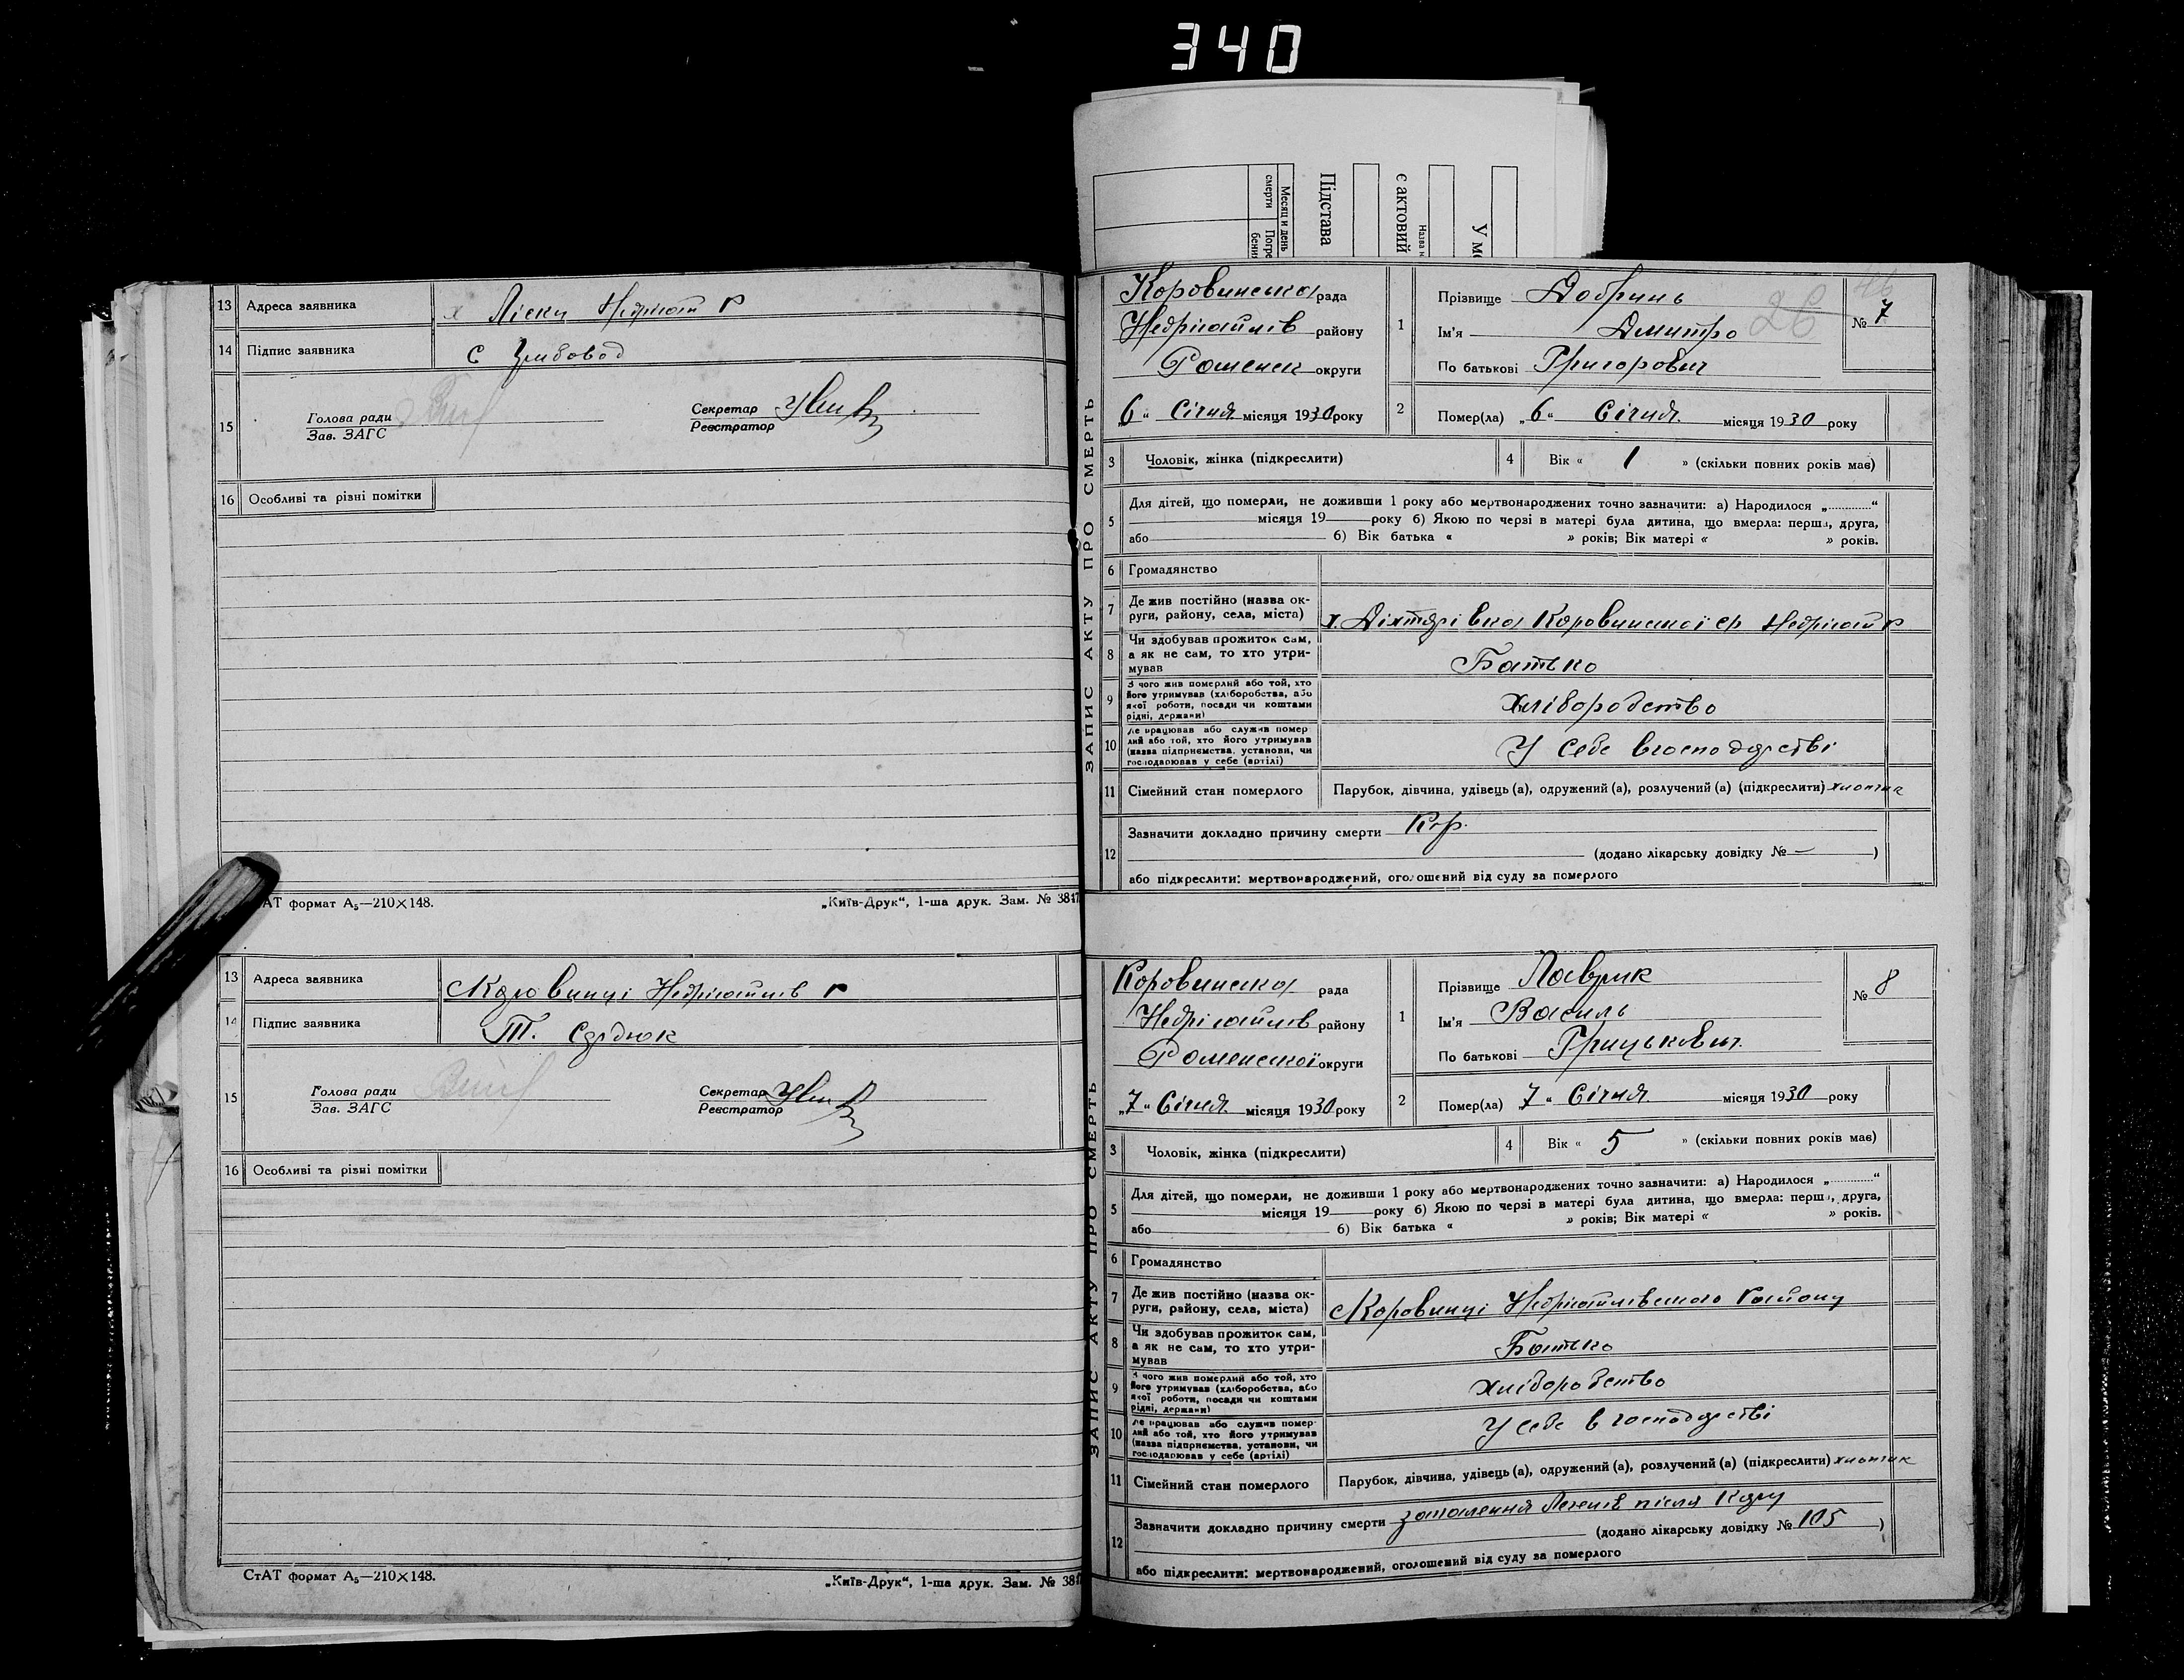 340
Місяц и день смерти
Погре бения
Підстава
є актовий
Назва н
У мо
13 Адреса заявника х Ліски Недригай р
14 Підпис заявника С
15 Голова ради Секретар
Зав. ЗАГС Реєстратор
16 Особливі та різні помітки
АТ формат А₅—210×148. „Київ-Друк“, 1-ша друк. Зам. № 3847
13 Адреса заявника с Коровинці Недригайлів р
14 Підпис заявника Т. Сердюк
15 Голова ради Секретар
Зав. ЗАГС Реєстратор
16 Особливі та різні помітки
СтАТ формат А₅—210×148. „Київ-Друк“, 1-ша друк. Зам. № 384
ЗАПИС АКТУ ПРО СМЕРТЬ
Коровинська рада
Недрігайлів району
Роменськ округи
„6“ Січня місяця 1930 року
1 Прізвище Добринь
Ім'я Дмитро 26
По батькові Григорович
46
№ 7
2 Помер(ла) „6“ Січня місяця 1930 року
3 Чоловік, жінка (підкреслити) 4 Вік « 1 » (скільки повних років має)
5 Для дітей, що померли, не доживши 1 року або мертвонароджених точно зазначити: а) Народилося „............“
місяця 19 року б) Якою по черзі в матері була дитина, що вмерла: перша, друга,
або б) Вік батька « » років; Вік матері « » років.
6 Громадянство
7 Де жив постійно (назва округи, району, села, міста) х. Діхтярівка Коровинської с/р Недригай р
8 Чи здобував прожиток сам, а як не сам, то хто утримував Батько
9 З чого жив померлий або той, хто його утримував (хліборобства, або якої роботи, посади чи коштами рідні, держави) Хліборобство
10 Де працював або служив помер лий або той, хто його утримував (назва підприємства, установи, чи господарював у себе (артілі) У себе в господарстві
11 Сімейний стан померлого Парубок, дівчина, удівець (а), одружений (а), розлучений (а) (підкреслити) хлопчик
12 Зазначити докладно причину смерти Кір.
(додано лікарську довідку № — )
або підкреслити: мертвонароджений, оголошений від суду за померлого
ЗАПИС АКТУ ПРО СМЕРТЬ
Коровинська рада
Недрігайлів району
Роменської округи
„7“ Січня місяця 1930 року
1 Прізвище Лаврик
Ім'я Василь
По батькові Грицькович
№ 8
2 Помер(ла) 7“ Січня місяця 1930 року
3 Чоловік, жінка (підкреслити) 4 Вік « 5 » (скільки повних років має)
5 Для дітей, що померли, не доживши 1 року або мертвонароджених точно зазначити: а) Народилося „............“
місяця 19 року б) Якою по черзі в матері була дитина, що вмерла: перша, друга,
або б) Вік батька « » років; Вік матері « » років.
6 Громадянство
7 Де жив постійно (назва округи, району, села, міста) с Коровинці Недригайлівського району
8 Чи здобував прожиток сам, а як не сам, то хто утримував Батько
9 З чого жив померлий або той, хто його утримував (хліборобства, або якої роботи, посади чи коштами рідні, держави) Хліборобство
10 Де працював або служив помер лий або той, хто його утримував (назва підприємства, установи, чи господарював у себе (артілі) У себе в господарстві
11 Сімейний стан померлого Парубок, дівчина, удівець (а), одружений (а), розлучений (а) (підкреслити) хлопчик
12 Зазначити докладно причину смерти запалення Легенів після Кору
(додано лікарську довідку № 105 )
або підкреслити: мертвонароджений, оголошений від суду за померлого